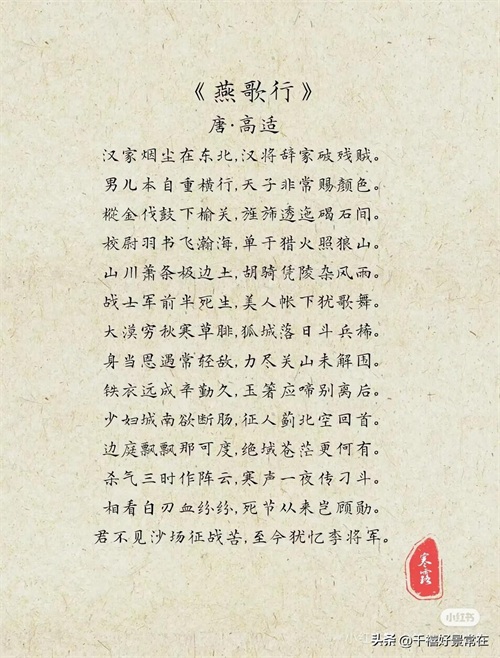 《燕歌行》
唐·高适
汉家烟尘在东北,汉将辞家破残贼。
男儿本自重横行,天子非常赐颜色。
摐金伐鼓下榆关,旌旆逶迤碣石间。
校尉羽书飞瀚海,单于猎火照狼山。
山川萧条极边土,胡骑凭陵杂风雨。
战士军前半死生,美人帐下犹歌舞。
大漠穷秋寒草腓,孤城落日斗兵稀。
身当恩遇常轻敌,力尽关山未解围。
铁衣远戍辛勤久,玉箸应啼别离后。
少妇城南欲断肠,征人蓟北空回首。
边庭飘飘那可度,绝域苍茫更何有。
杀气三时作阵云,寒声一夜传刁斗。
相看白刃血纷纷,死节从来岂顾勋。
君不见沙场征战苦,至今犹忆李将军。
寒露
小红书
头条 @千禧好景常在